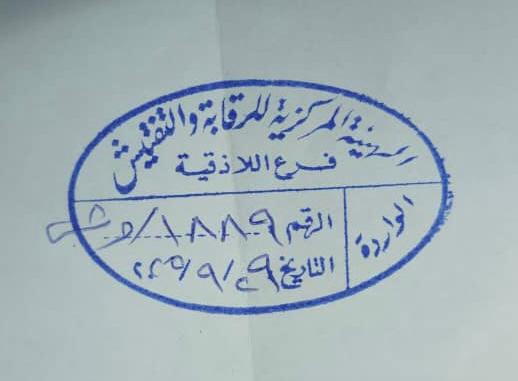 الهيئة المركزية للرقابة والتفتيش
فرع اللاذقية
الواردة
الرقم ١٨٨٩/
التاريخ ٢٩/٩/